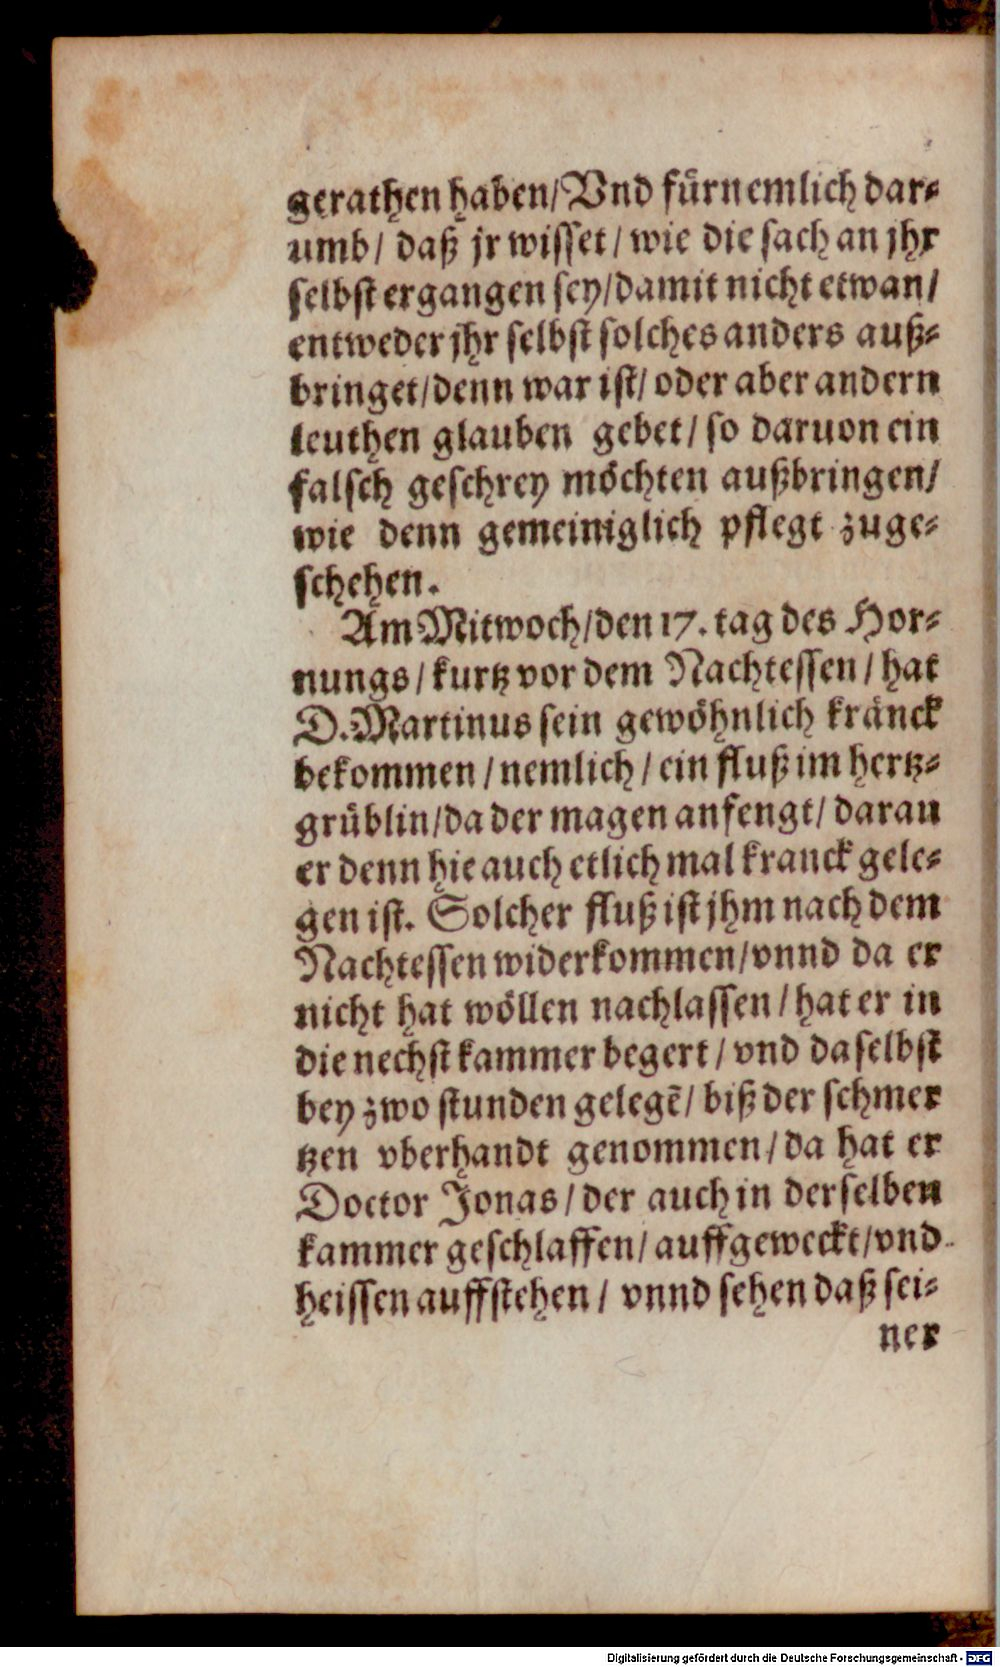 gerathen haben/Vnd fürnemlich dar⸗
umb/ daß jr wisset/ wie die sach an jhr
selbst ergangen sey/damit nicht etwan/
entweder jhr selbst solches anders auß⸗
bringet/denn war ist/ oder aber andern
leuthen glauben gebet/ so daruon ein
falsch geschrey möchten außbringen/
wie denn gemeiniglich pflegt zuge⸗
schehen.
Am Mitwoch/den 17. tag des Hor⸗
nungs/ kurtz vor dem Nachtessen/ hat
D. Martinus sein gewöhnlich kränck
bekommen/ nemlich/ ein fluß im hertz⸗
grüblin/da der magen anfengt/ daran
er denn hie auch etlich mal kranck gele⸗
gen ist. Solcher fluß ist jhm nach dem
Nachtessen widerkommen/vnnd da er
nicht hat wöllen nachlassen/ hat er in
die nechst kammer begert/ vnd daselbst
bey zwo stunden gelegẽ/ biß der schmer
tzen vberhandt genommen/da hat er
Doctor Jonas/ der auch in derselben
kammer geschlaffen/ auffgeweckt/vnd
heissen auffstehen/ vnnd sehen daß sei⸗
ner
Digitalisierung gefördert durch die Deutsche Forschungsgemeinschaft - DFG